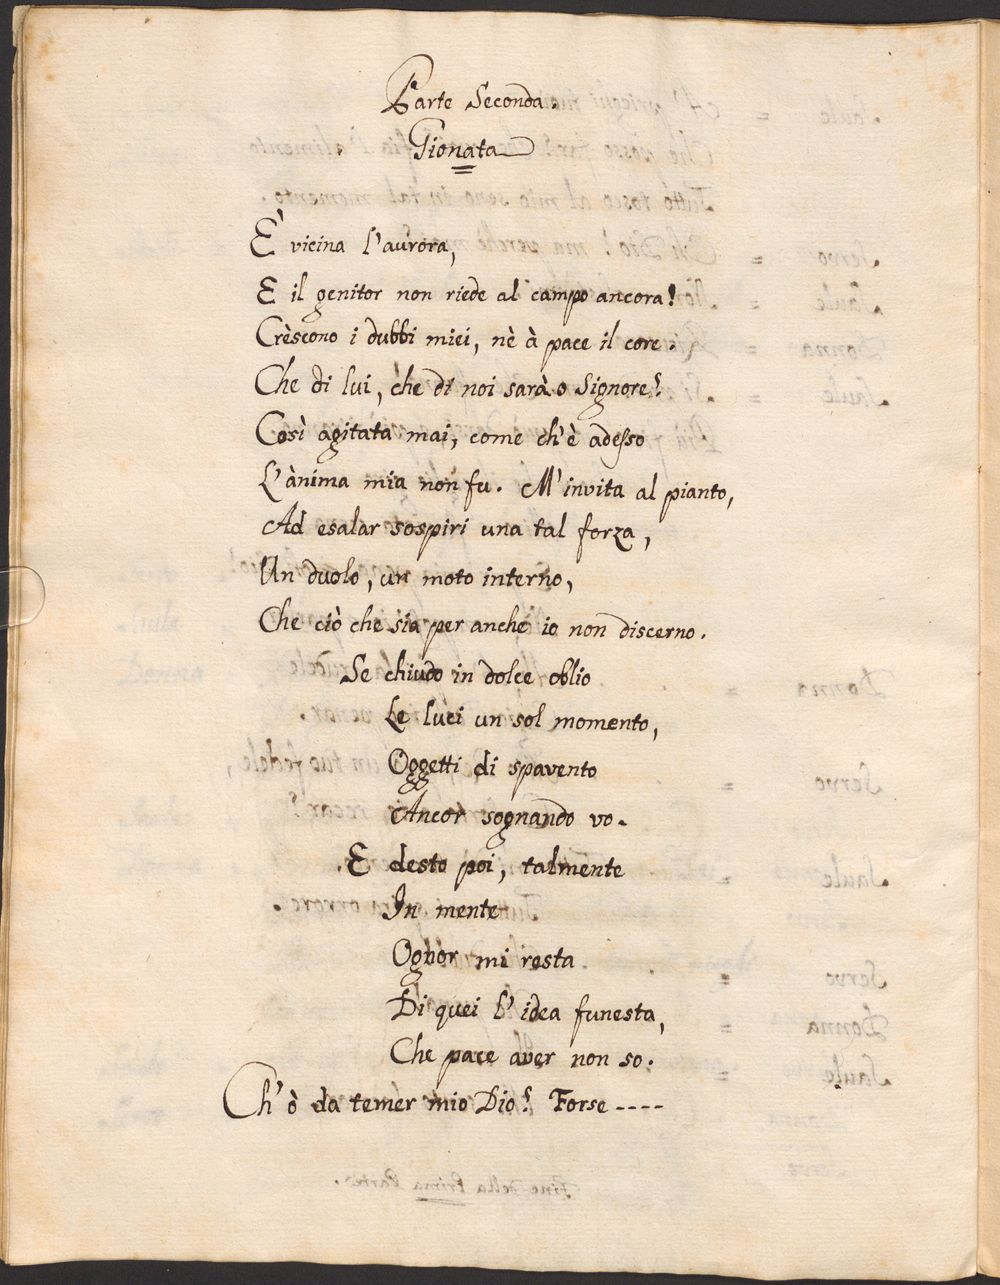 Parte Seconda.
Gionata
È vicina l'aurora,
E il genitor non riede al campo ancora!
Crèscono i dubbi miei, nè à pace il core.
Che di lui, che di noi sarà o Signore?
Così agitata mai, come ch'è adesso
L'ànima mia non fu. M'invita al pianto,
Ad esalar sospiri una tal forza,
Un duolo, un moto interno,
Che ciò che sia per anche io non discerno.
Se chiudo in dolce oblio
Le luci un sol momento,
Oggetti di spavento
Ancor sognando vo.
E desto poi, talmente
In mente
Ognor mi resta
Di quei l'idea funesta,
Che pace aver non so.
Ch'ò da temer mio Dio? Forse ----